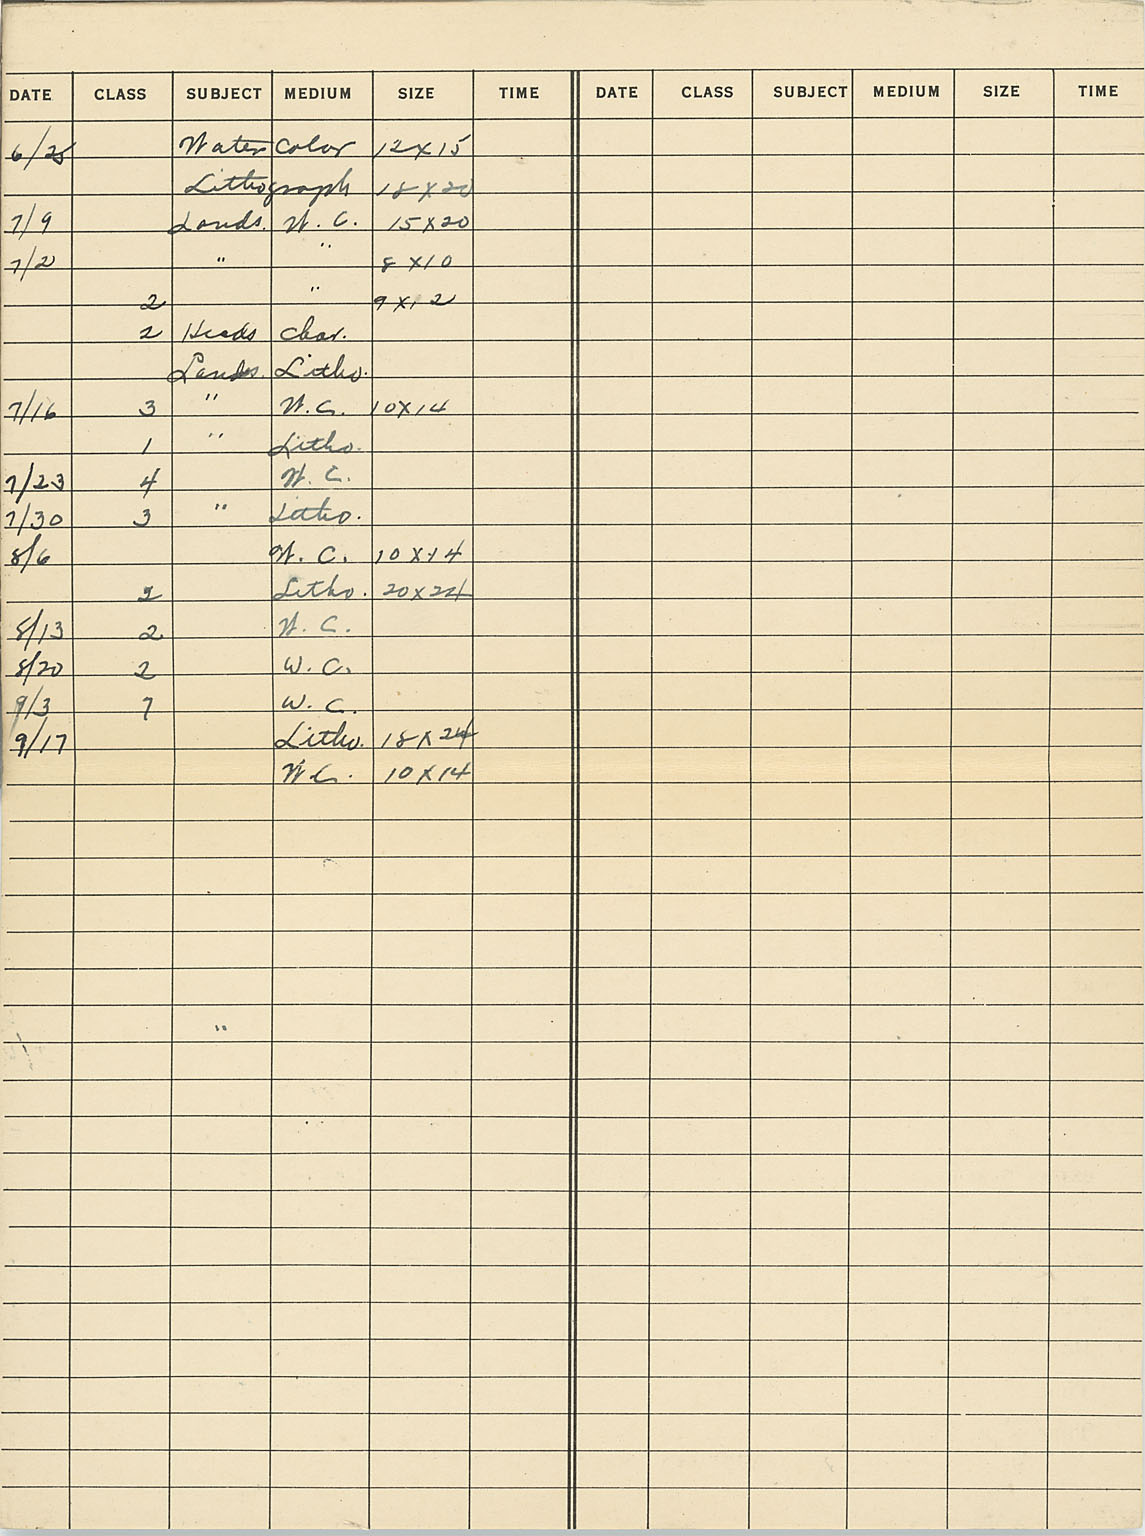 DATE CLASS SUBJECT MEDIUM SIZE TIME DATE CLASS SUBJECT MEDIUM SIZE TIME
6/25 Water Color 12x15
Lithograph 18x20
7/9 Lands. W. C. 15x20
7/2 " " 8x10
2 " 9x12
2 Heads Char.
Lands. Litho.
7/16 3 " W.C. 10x14
1 " Litho.
7/23 4 W. C.
7/30 3 " Litho.
8/6 W. C. 10x14
2 Litho. 20x24
8/13 2 W. C.
8/20 2 W. C.
9/3 7 W. C.
9/17 Litho. 18x24
W C. 10x14
"